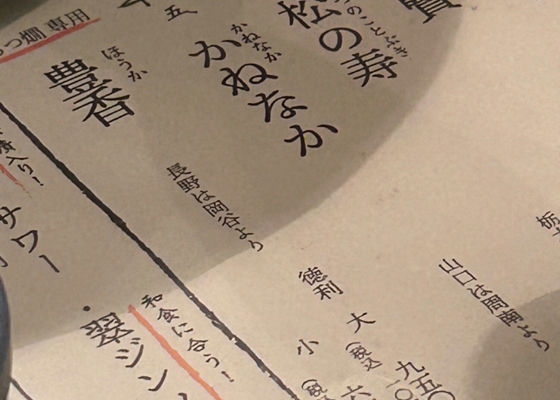 栃
のことぶき
松の寿
山口は周南より
かねなか
かねなか
長野は岡谷より
ほうか
豊香
五
つ燗 専用
徳利 大 (税込 九五〇
小 (税込 六
和食に合う!
・翠ジン
入り!
サワー